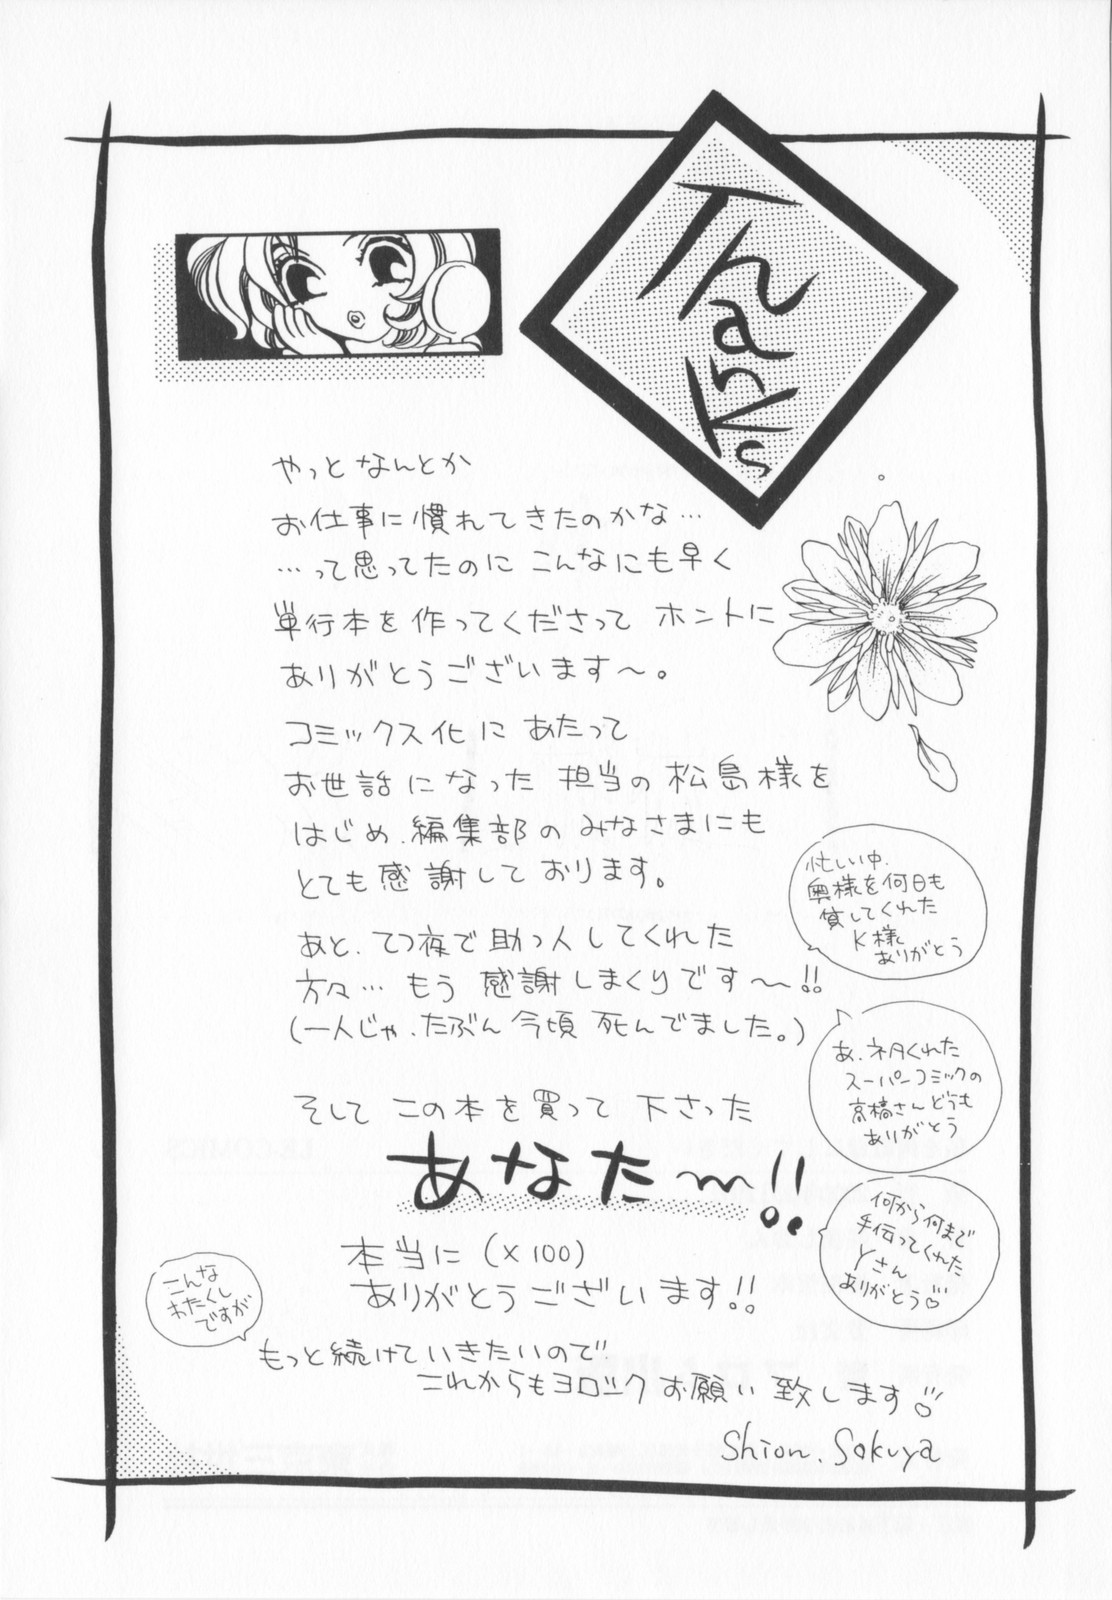 Thanks
やっとなんとか
お仕事に慣れてきたのかな…
…って思ってたのに こんなにも早く
単行本を作ってくださって ホントに
ありがとうございます〜。
コミックス化に あたって
お世話になった 担当の松島様を
はじめ、編集部の みなさまにも
とても感謝しております。
あと、てつ夜で助っ人してくれた
方々… もう 感謝しまくりです〜!!
(一人じゃ、たぶん今頃 死んでました。)
そして この本を買って 下さった
あなた〜!!
本当に (×100)
ありがとうございます!!
もっと続けていきたいので
これからもヨロシク お願い致します♡
Shion. Sakuya
忙しい中、
奥様を何日も
貸してくれた
K様
ありがとう
あ、ネタくれた
スーパーコミックの
高橋さんどうも
ありがとう
何から何まで
手伝ってくれた
Yさん
ありがとう♡
こんな
わたくし
ですが